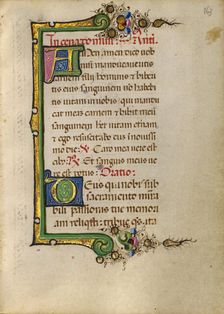 In euangelium: Anti.
Amen amen dico uobi
nisi manducaueritis
carnem filij hominis et biberi
tis eius sanguinem non habe
tis uitam in uobis qui mandu
cat meam carnem et bibit meu
sanguinem habet uitam eternam
et ego resuscitabo eum in nouissi
mo die. Caro mea uere est ci
bus. Et sanguis meus ue
re est potus: Oratio:
Deus qui nobis sub
sacramento mira
bili passionis tue memori
am reliqsti: tribue qs ita